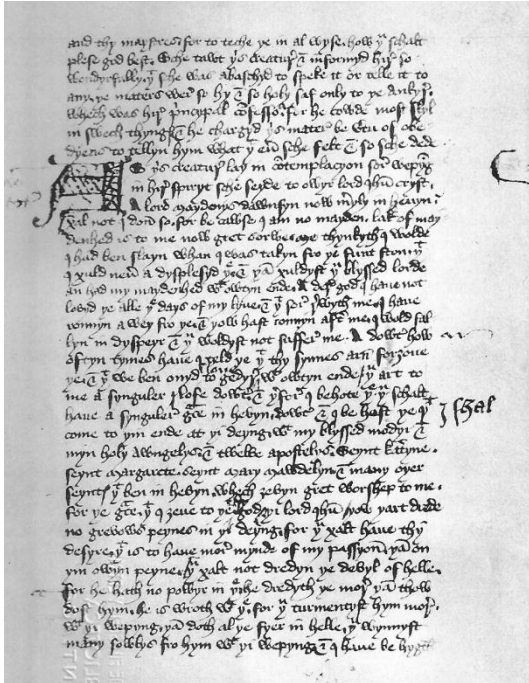 and thy maystres for to teche yͤ in al wyse. how yͧ schalt
plese god best. Sche talde yˢ creatur & informyd hir so
wondyrfully yᵗ sche was abaschyd to speke it or telle it to
any. yͤ maters wer so hy & so holy saf only to yͤ ankyr.
whech was hir pͥncypal cōfessor. for he cowde most skyl
in swech thyngys. & he chargyd yˢ creatur be vtu of obe
dyens to tellyn hym what yᵗ euͬ sche felt & so sche dede
As yˢ creatur lay in cōtemplacyon sor wepyng
in hir spyryt sche seyde to owyr lord ihū cryst.
A lord maydenys dawnsyn now mͬyly in heuyn.
xal not I don so. for be cawse I am no mayden. lak of may
denhed is to me now gret sorwe. me thynkyth I wolde
I had ben slayn whan I was takyn fro yͤ funt ston. yᵗ
I xuld neuͬ a dysplesyd yͤ. & yā xuldyst yͧ blyssed lorde
an had my maydenhed wᵗ owtyn ende. A der god I haue not
louyd yͤ alle yͤ days of my lyue. & yᵗ sor rewyth me. I haue
ronnyn a wey fro yͤ. & yow hast ronnyn aftͬ me. I wold fal
lyn in dyspeyr & yͧ woldyst not suffer me. A dowtͬ how
oftyn tymes haue I teld yͤ yᵗ thy synnes arn forȝoue
yͤ. & yᵗ we ben onyd to gedyr wᵗ owtyn ende. yͧ art to
loue
me a synguler lofe dowtͬ. & yͬfor I behote yͤ yͧ schalt
haue a synguler gͣce in hevyn. dowtͬ & I be hest yͤ yᵗ
I schal
come to yin ende at yi deyng. wᵗ my blyssed modyr &
myn holy awngelys. & twelve apostelys. Seynt katͬyne.
seynt margarete. seynt mary mawdelyn. & many oyer
seyntys yᵗ ben in hevyn. whech ȝevyn gret worshep to me.
for yͤ gͣce. yᵗ I ȝeue to yͤ. god yi lord ihū. yow yart drede
no grevows peynes in yi deyng. for yͧ xalt haue thy
desyre. yᵗ is to haue mor mynde of my passyon. yā on
yin owyn peyne. yͧ xalt not dredyn yͤ devyl of helle.
for he hath no powyr in yͤ. he dredyth yͤ mor yā thow
dost hym. he is wroth wᵗ yͤ. for yͧ turmentyst hym mor.
wᵗ yi wepyng. yā doth al yͤ fyer in helle. yͧ wynnyst
many sowlys fro hym wᵗ yi wepyng. & I haue be hygt